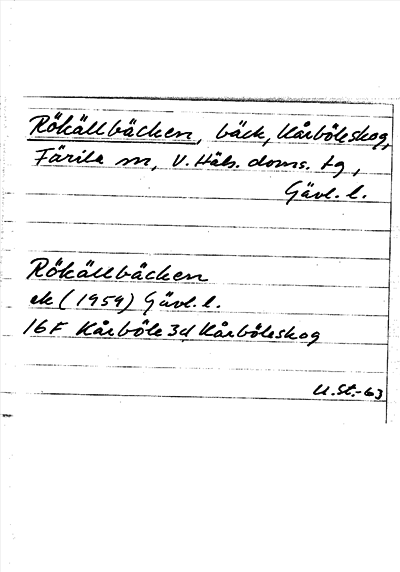 Rökällbäcken, bäck, Kårböleskog,
Färila sn, V. Häls. doms. tg,
Gävl. l.
Rökällbäcken
ek (1959) Gävl. l.
16F Kårböle 3d Kårböleskog
U.St.-63